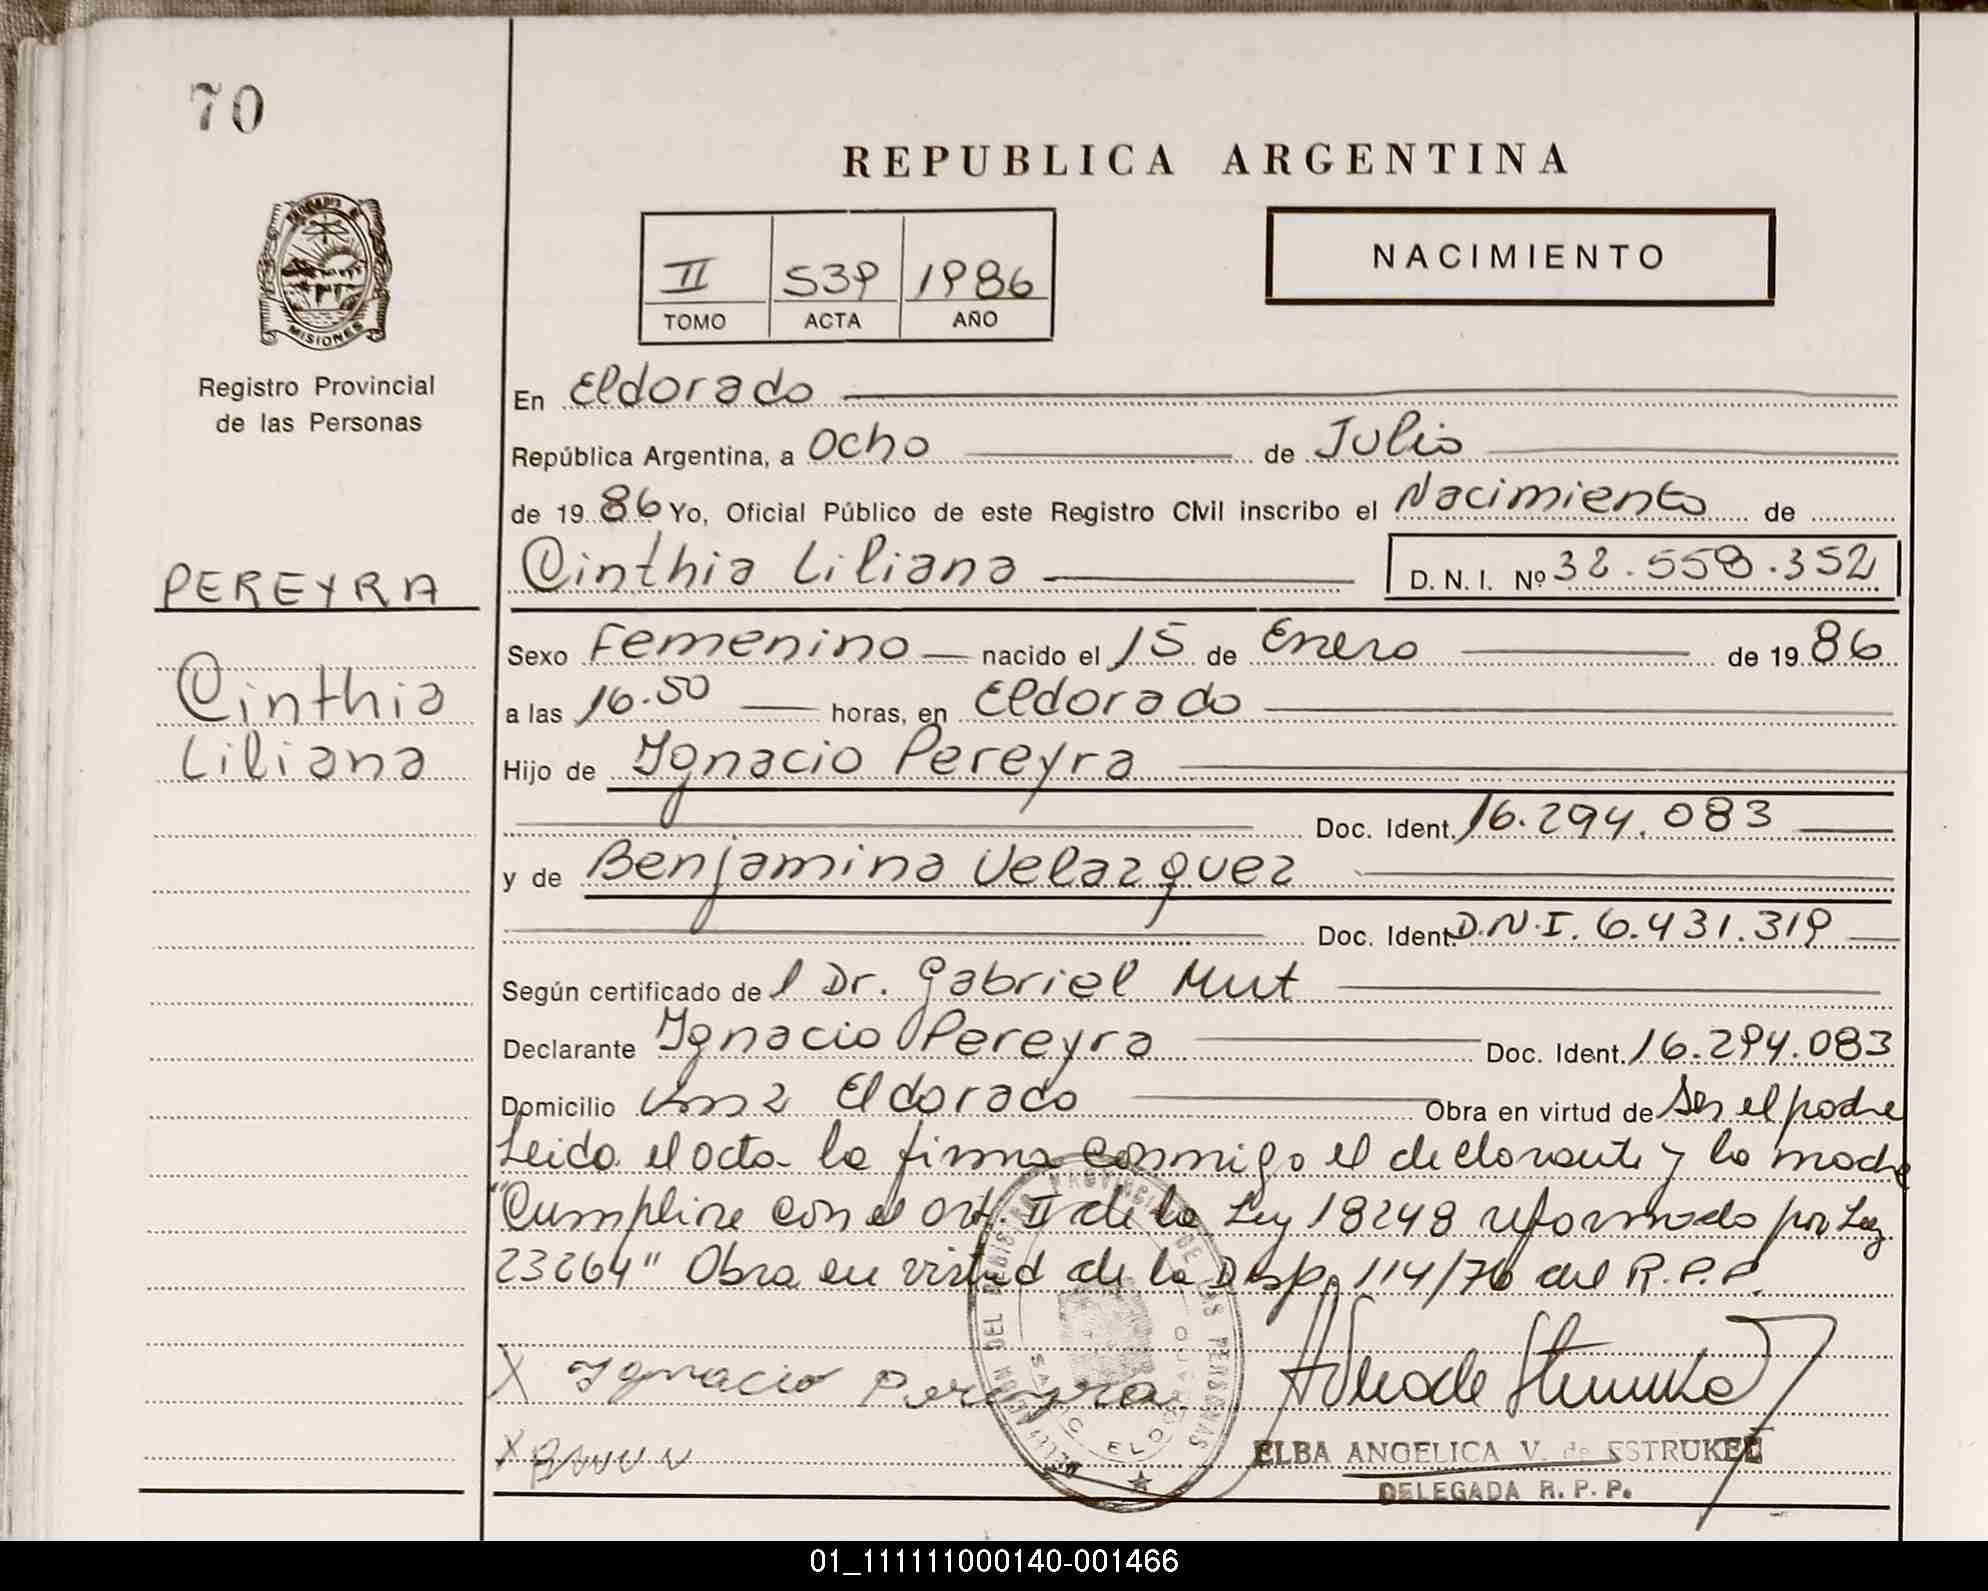 70
REPUBLICA ARGENTINA
NACIMIENTO
II 539 1986
TOMO ACTA AÑO
MISIONES
Registro Provincial
de las Personas
En Eldorado
República Argentina, a Ocho de Julio
de 1986 Yo, Oficial Público de este Registro Civil inscribo el Nacimiento de
PEREYRA
Cinthia Liliana D. N. I. Nº 32.558.352
Cinthia
Liliana
Sexo Femenino nacido el 15 de Enero de 1986
a las 16.50 horas, en Eldorado
Hijo de Ignacio Pereyra
Doc. Ident. 16.294.083
y de Benjamina Velazquez
Doc. Ident. D.N.I. 6.431.319
Según certificado del Dr. Gabriel Mut
Declarante Ignacio Pereyra Doc. Ident. 16.294.083
Domicilio Km 2 Eldorado Obra en virtud de Ser el padre
Leida el acta la firma conmigo el declarante y la madre
"Cumplire con el art. II de la Ley 18248 reformado por Ley
23264" Obra en virtud de la Disp. 114/76 del R.P.P.
X Ignacio Pereyra
X
ELBA ANGELICA V. de ESTRUKEL
DELEGADA R. P. P.
01_111111000140-001466